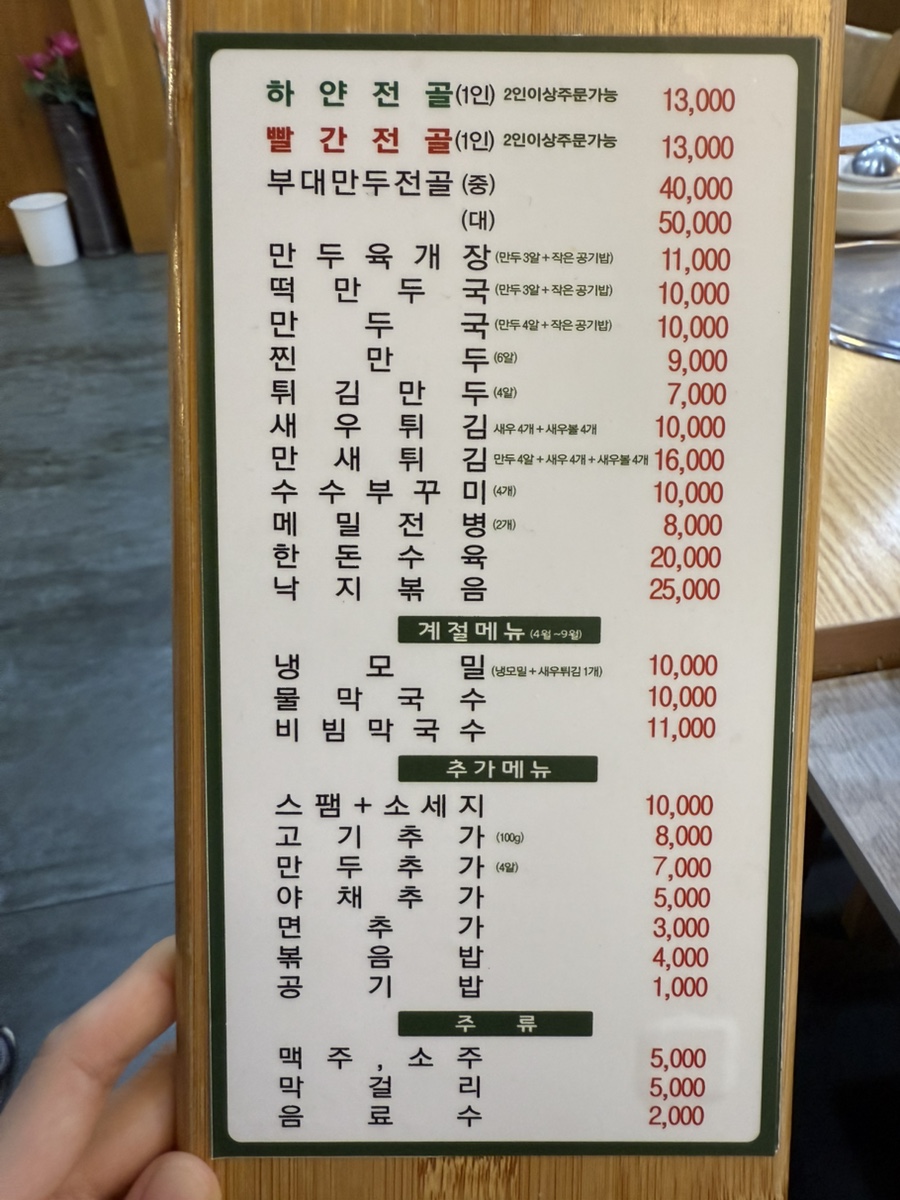 하얀전골(1인) 2인이상주문가능 13,000
빨간전골(1인) 2인이상주문가능 13,000
부대만두전골 (중) 40,000
(대) 50,000
만두육개장 (만두 3알 + 작은 공기밥) 11,000
떡만두국 (만두 3알 + 작은 공기밥) 10,000
만두국 (만두 4알 + 작은 공기밥) 10,000
찐만두 (6알) 9,000
튀김만두 (4알) 7,000
새우튀김 새우 4개 + 새우볼 4개 10,000
만새튀김 만두 4알 + 새우 4개 + 새우볼 4개 16,000
수수부꾸미 (4개) 10,000
메밀전병 (2개) 8,000
한돈수육 20,000
낙지볶음 25,000
계절메뉴 (4월~9월)
냉모밀 (냉모밀 + 새우튀김 1개) 10,000
물막국수 10,000
비빔막국수 11,000
추가메뉴
스팸+소세지 10,000
고기추가 (100g) 8,000
만두추가 (4알) 7,000
야채추가 5,000
면추가 3,000
볶음밥 4,000
공기밥 1,000
주류
맥주, 소주 5,000
막걸리 5,000
음료수 2,000